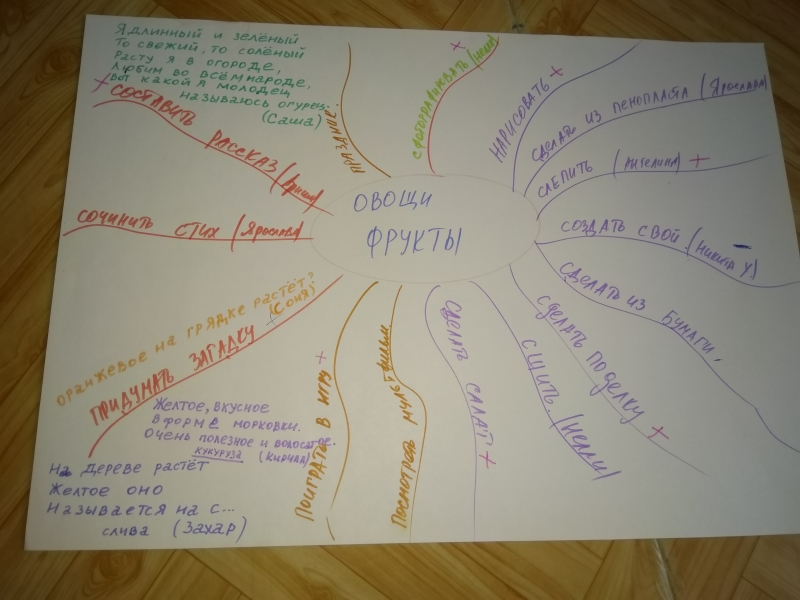 Я длинный и зелёный
То свежий, то солёный
Расту я в огороде,
Любим во всём народе,
Вот какой я молодец
называюсь огурец..
(Саша)
+ СОСТАВИТЬ РАССКАЗ (Ариша)
СОЧИНИТЬ СТИХ (Ярослава)
Оранжевое на грядке растёт?
(Соня)
ПРИДУМАТЬ ЗАГАДКУ +
Желтое, вкусное
В форме морковки.
Очень полезное и волосатое.
кукуруза (Кирилл)
На дереве растёт
Желтое оно
Называется на с...
слива (Захар)
ПРАЗДНИК
СФОТОГРАФИРОВАТЬ +
НАРИСОВАТЬ +
СДЕЛАТЬ ИЗ ПЕНОПЛАСТА (Ярослава)
СЛЕПИТЬ (Ангелина) +
СОЗДАТЬ СВОЙ (Никита У)
СДЕЛАТЬ ИЗ БУМАГИ.
СДЕЛАТЬ ПОДЕЛКУ +
СШИТЬ. (Нелли)
СДЕЛАТЬ САЛАТ +
Посмотреть мультфильм
ПОИГРАТЬ В ИГРУ +
ОВОЩИ
ФРУКТЫ